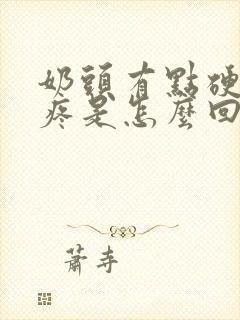 奶頭有點硬
疼是怎麼回
蕭寺